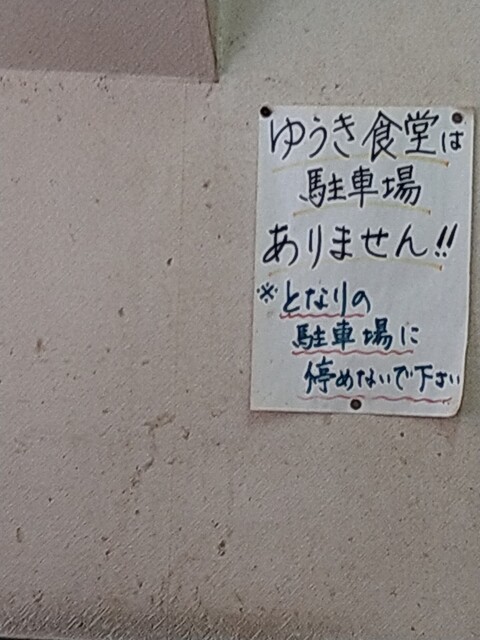 ゆうき食堂は
駐車場
ありません!!
※となりの
駐車場に
停めないで下さい